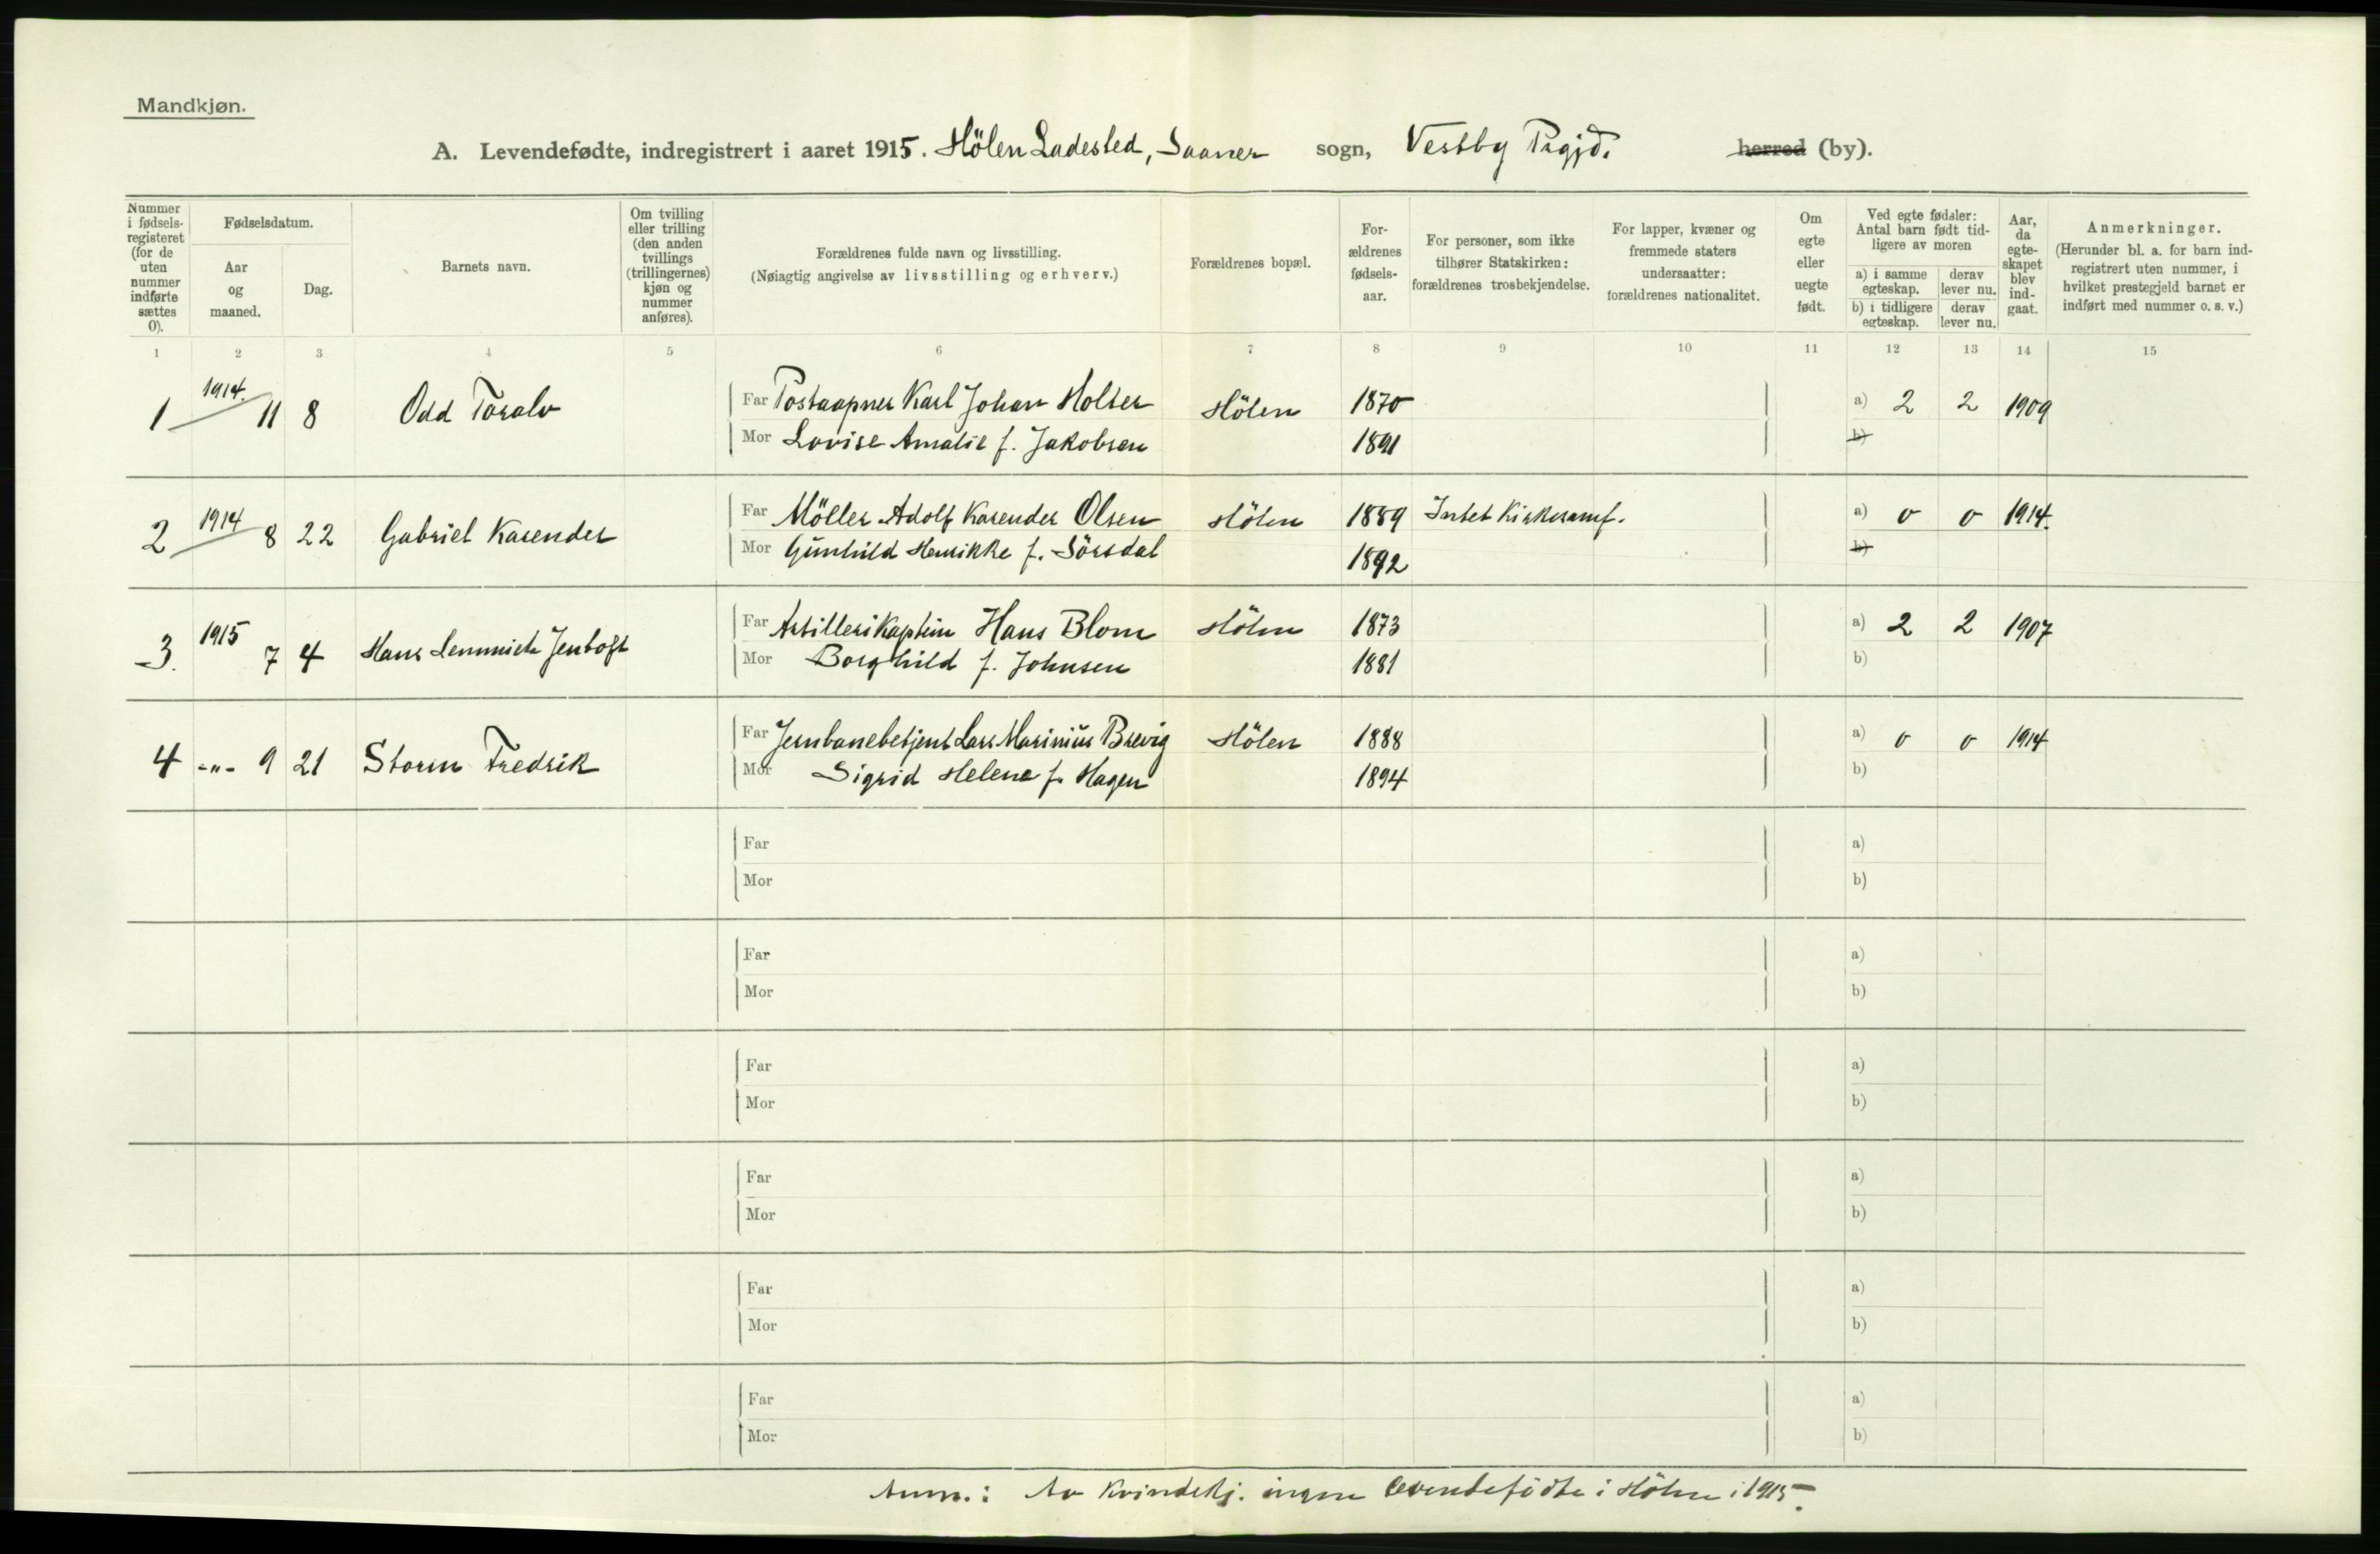 Mandkjøn.
A. Levendefødte, indregistrert i aaret 1915. Hölen Ladested, Saaner sogn, Vestby Prgjd. herred (by).
Nummer i fødsels-registeret (for de uten nummer indførte sættes 0).
Fødselsdatum.
Aar og maaned.
Dag.
Barnets navn.
Om tvilling eller trilling (den anden tvillings (trillingernes) kjøn og nummer anføres).
Forældrenes fulde navn og livsstilling.
(Nøiagtig angivelse av livsstilling og erhverv.)
Forældrenes bopæl.
For-ældrenes fødsels-aar.
For personer, som ikke tilhører Statskirken: forældrenes trosbekjendelse.
For lapper, kvæner og fremmede staters undersaatter: forældrenes nationalitet.
Om egte eller uegte født.
Ved egte fødsler: Antal barn født tid-ligere av moren
a) i samme egteskap.
derav lever nu.
b) i tidligere egteskap.
derav lever nu.
Aar, da egte-skapet blev ind-gaat.
Anmerkninger.
(Herunder bl. a. for barn ind-registrert uten nummer, i hvilket prestegjeld barnet er indført med nummer o. s. v.)
1 2 3 4 5 6 7 8 9 10 11 12 13 14 15
1 1914. 11 8 Odd Toralv Far Postaapner Karl Johan Holter Hölen 1870 a) 2 2 1909
Mor Lovise Amalie f. Jakobsen 1891 b)
2 1914 8 22 Gabriel Karender Far Möller Adolf Karender Olsen Hölen 1889 Intet Kirkesamf. a) 0 0 1914.
Mor Gunhild Henrikke f. Sörsdal 1892 b)
3. 1915 7 4 Hans Jentoft Far Artillerikaptein Hans Blom Hölen 1873 a) 2 2 1907
Mor Borghild f. Johnsen 1881 b)
4 -"- 9 21 Storm Fredrik Far Jernbanebetjent Lars Marinius Brevig Hölen 1888 a) 0 0 1914
Mor Sigrid Helene f. Hagen 1894 b)
Far a)
Mor b)
Far a)
Mor b)
Far a)
Mor b)
Far a)
Mor b)
Far a)
Mor b)
Far a)
Mor b)
Anm.: Av Kvindekj. ingen levendefödte i Hölen i 1915.